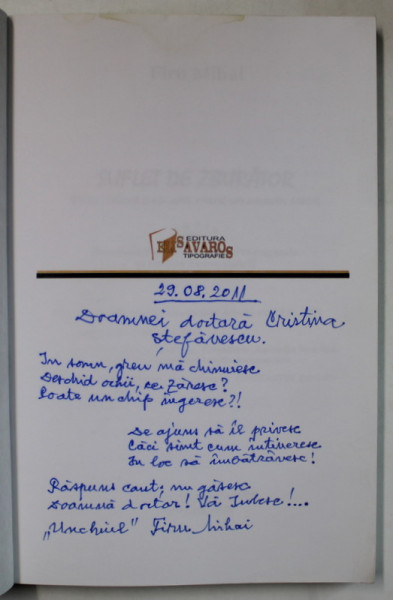 EDITURA
SAVAROS
TIPOGRAFIE
29.08.2011
Doamnei doctară Cristina
Ștefăvescu.
In somn, greu mă chinuiesc
Deschid ochii, ce zăresc?
Poate un chip îngeresc?!
De ajuns să îl privesc
Căci simt cum întineresc
În loc să îmbătrăvesc!
Răspuns caut; nu găsesc
Doamnă doctor! Vă Iubesc!...
„Unchiul" Firu Mihai